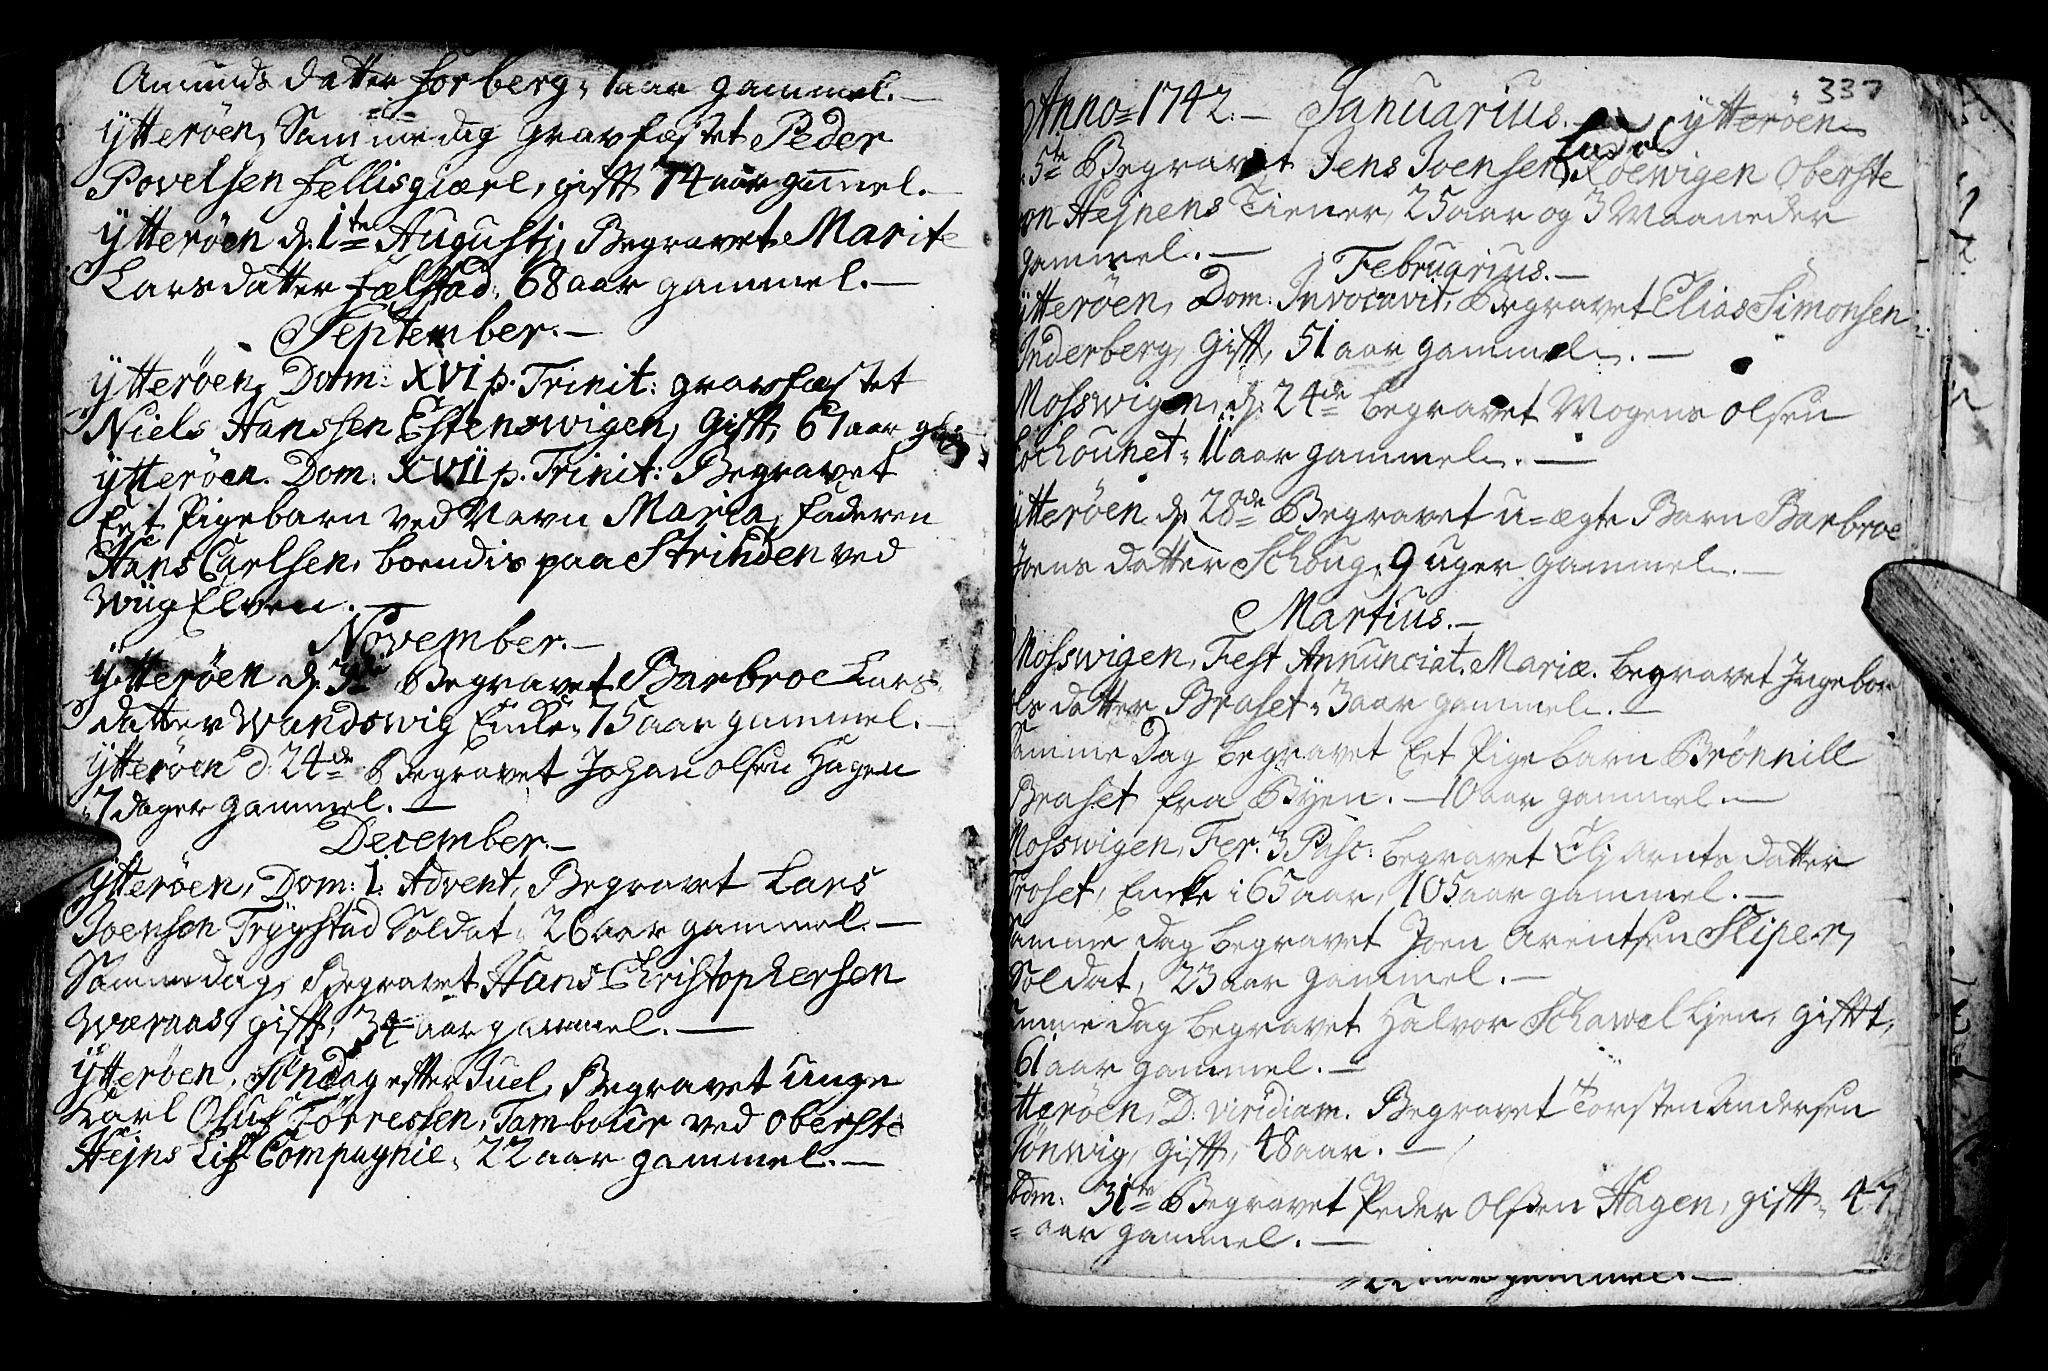 Amunds datter Forberg, 1 aar gammel. —
Ytterøen, Samme dag gravfæstet Peder
Povelsen Fellisgiære, gifft 74 aar gammel. —
Ytterøen d. 1te Augustj, Begravet Marite
Larsdatter Følstad, 68 aar gammel. —
September. —
Ytterøen, Dom: XVI p. Trinit: gravfæstet
Niels Hanssen Estenswigen, Gifft, 67 aar
Ytterøen. Dom: XVII p. Trinit: Begravet
Eet Pigebarn ved Navn Maria, Faderen
Hans Carlsen, boendis paa Strinden ved
Wiig Elven. —
November. —
Ytterøen d. Begravet Barbroe Lars
datter Wandswig Encke, 75 aar gammel. —
Ytterøen d. 24de Begravet Johan Olsen Hagen
7 dager gammel. —
December. —
Ytterøen, Dom: 1. Advent, Begravet Lars
Joensen Trygstad Soldat, 26 aar gammel. —
Samme dag, Begravet Hans Christophersen
Wæraas, gifft, 34 aar gammel. —
Ytterøen, Søndag efter Juel, Begravet unge
Karl Oluf Tørressen, Tambour ved Oberste
Hejns Lif Compagnie, 22 aar gammel. —
337
Anno = 1742. — Januarius. — Ytterøen
5te Begravet Jens Joensen Oberste
von Hejnens Tiener, 25 aar og 3 Maaneder
gammel. —
Februarius. —
Ytterøen, Dom: Invocavit, Begravet Elias Simonsen
Inderberg, Gifft, 51 aar gammel. —
Mosswigen, d. 24de begravet Mogens Olsen
11 aar gammel. —
Ytterøen d. 28de Begravet u-ægte Barn Barbroe
Joens datter Schoug, 9 uger gammel. —
Martius. —
Mosswigen, Fest Annunciat. Mariæ. begravet Ingebor
Ols datter Braset, 3 aar gammel. —
Samme Dag begravet Eet Pigebarn Brønnill
Braset fra Byen. — 10 aar gammel. —
Mosswigen, Fer. 3 Pasc: begravet Elj Arnts datter
Troset, Encke i 65 aar, 105 aar gammel. —
Samme dag begravet Joen Arentsen Skiper,
Soldat, 23 aar gammel. —
Samme dag begravet Halvor Schawel Ejen, gifft,
61 aar gammel. —
Ytterøen, D. viridium. Begravet Torsten Andersen
Sønwig, Gifft, 48 aar. —
31te Begravet Peder Olssen Hagen, gifft, 47
aar gammel. —
aar gammel. —